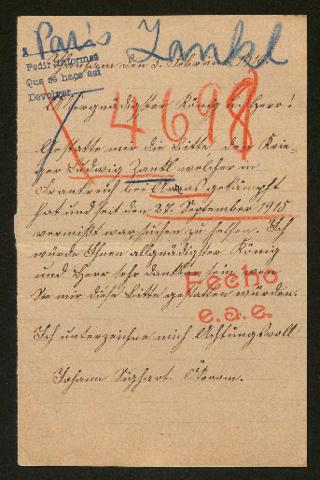 Paris Zankl
A
Pedir informes
Que se hace así
Devolver
den 3. Februar
Allergnädigster König u. Herr!
4698
Gestatte mir die Bitte den Krie-
ger Ludwig Zankl welcher in
Frankreich bei gekämpft
hat und seit den 27. September 1915
vermißt war suchen zu helfen. Ich
würde Ihnen allgnädigster König
und Herr sehr dankbar sein, wen
Sie mir diese Bitte gestatten würden.
Fecho
e.a.e.
Ich unterzeichne mich Achtungsvoll
Johann Sighart Ökonom.